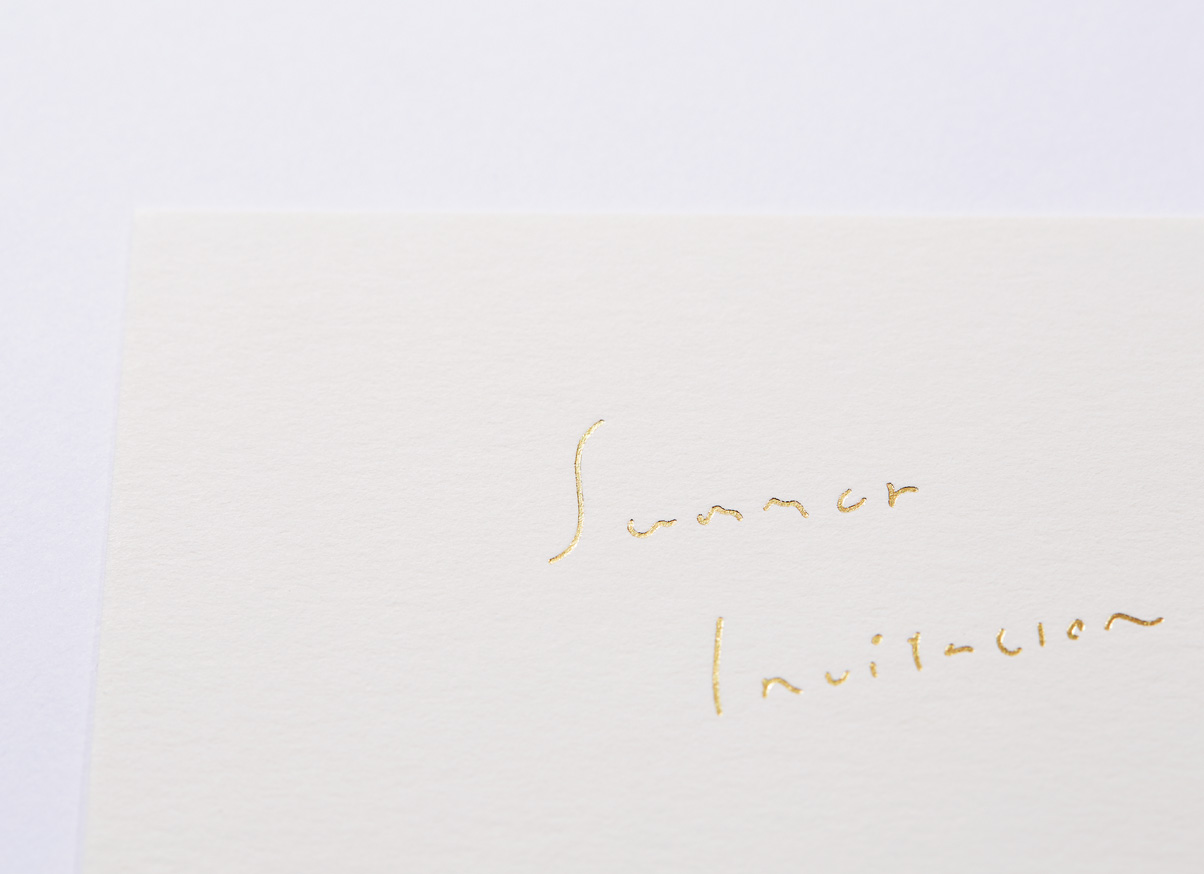 Summer
Invitacion